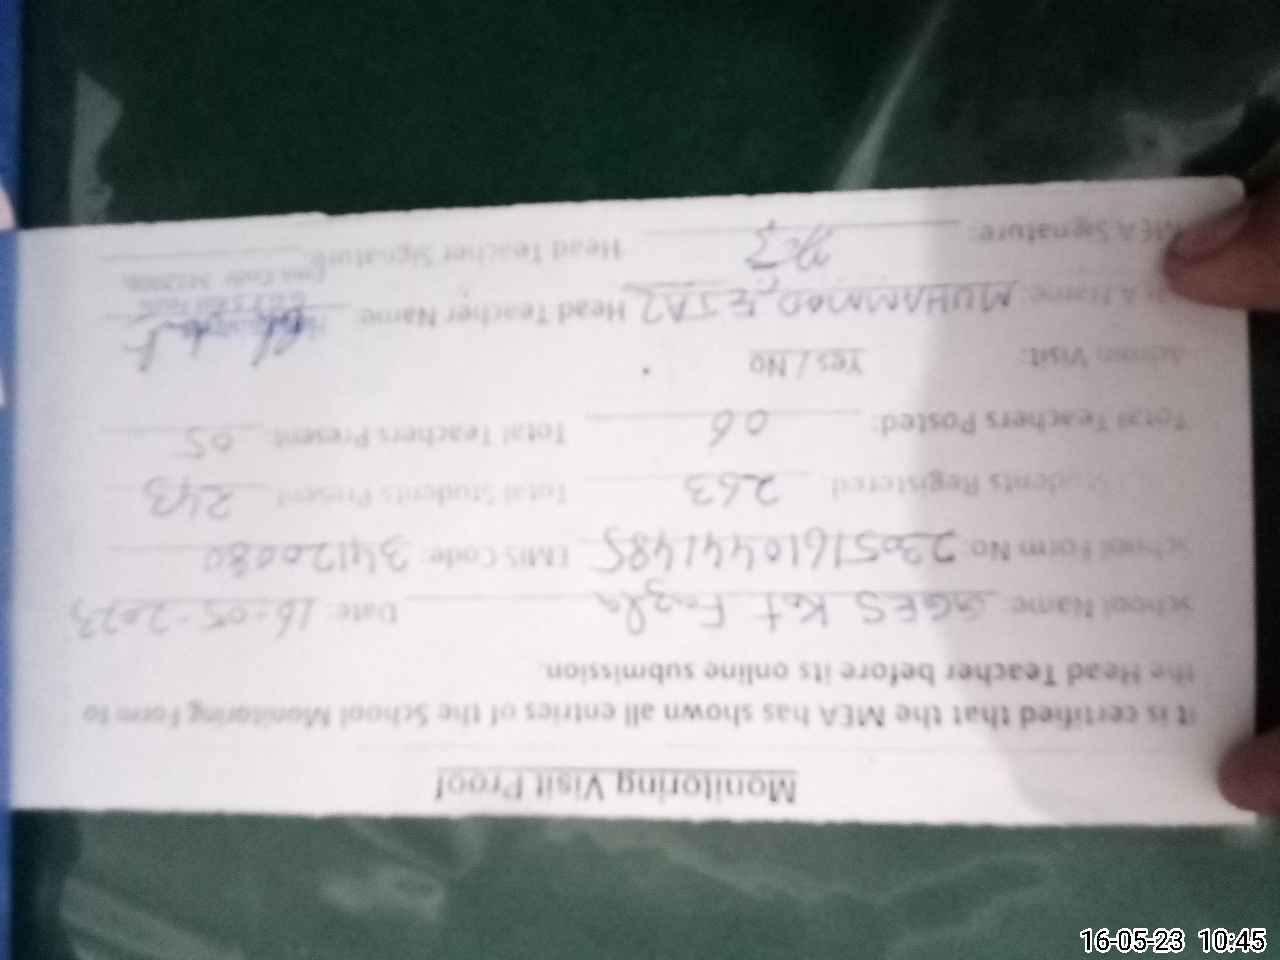 Monitoring Visit Proof
It is certified that the MEA has shown all entries of the School Monitoring Form to
the Head Teacher before its online submission.
School Name: GGES Kot Fazla Date: 16-05-2023
School Form No: 23051610441485 EMIS Code: 34120080
Students Registered: 263 Total Students Present: 243
Total Teachers Posted: 06 Total Teachers Present: 05
Admin Visit: Yes / No
MEA Name: MUHAMMAD EJAZ Head Teacher Name:
MEA Signature: Head Teacher Signature:
16-05-23 10:45